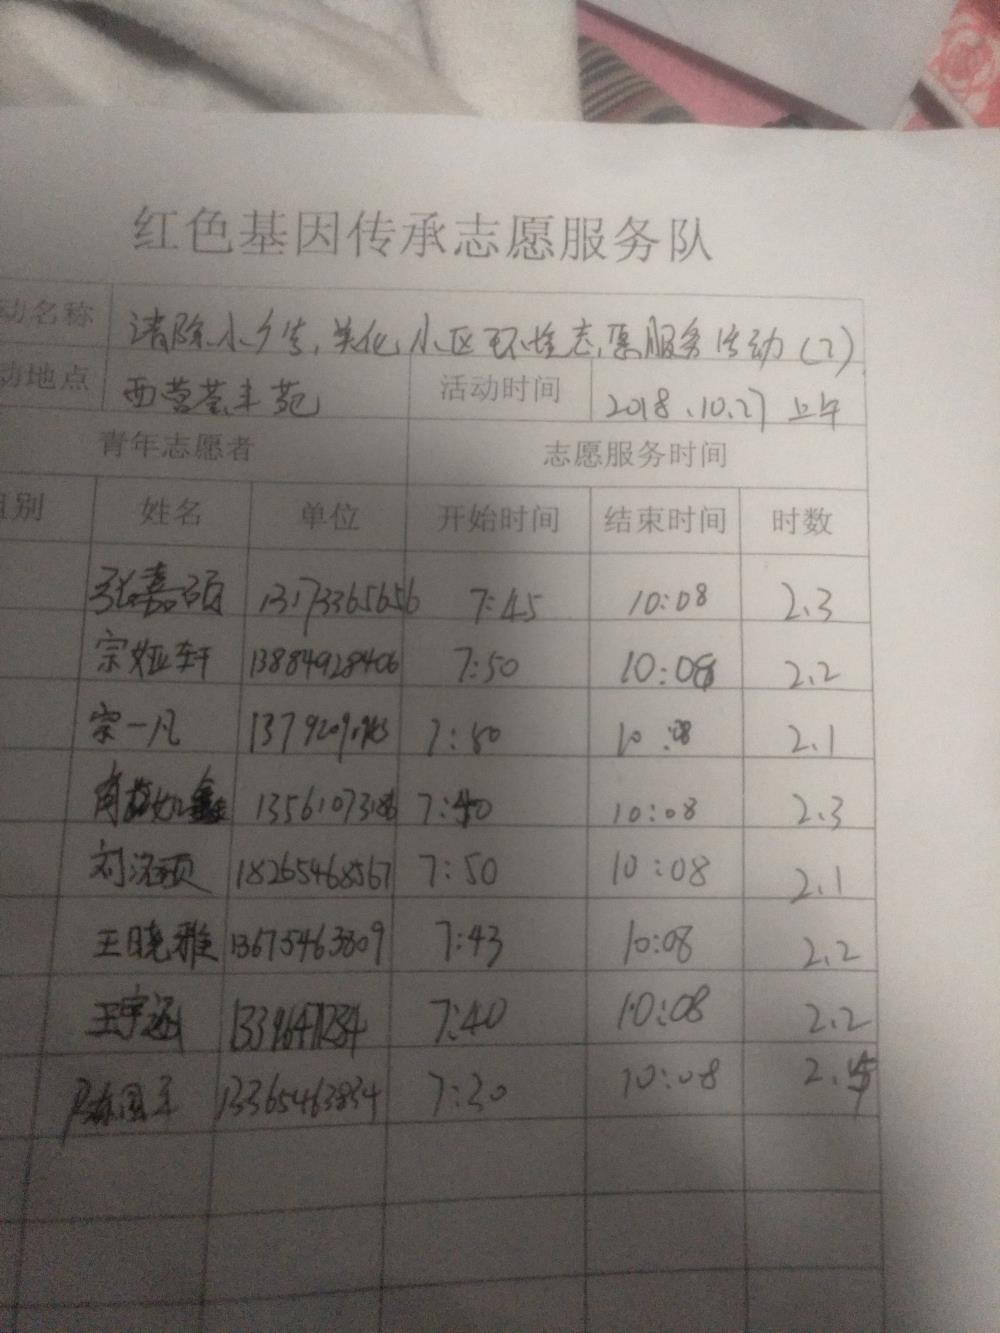 红色基因传承志愿服务队
动名称 清除小广告,美化小区环境志愿服务活动(2)
动地点 西营荟丰苑 活动时间 2018.10.27 上午
青年志愿者 志愿服务时间
别 姓名 单位 开始时间 结束时间 时数
张嘉硕 13173365656 7:45 10:08 2.3
宗娅轩 13884928406 7:50 10:08 2.2
宗一凡 7:50 10:08 2.1
7:40 10:08 2.3
刘 18265468567 7:50 10:08 2.1
王晓雅 13675463809 7:43 10:08 2.2
王宇涵 7:40 10:08 2.2
13365463834 7:30 10:08 2.5